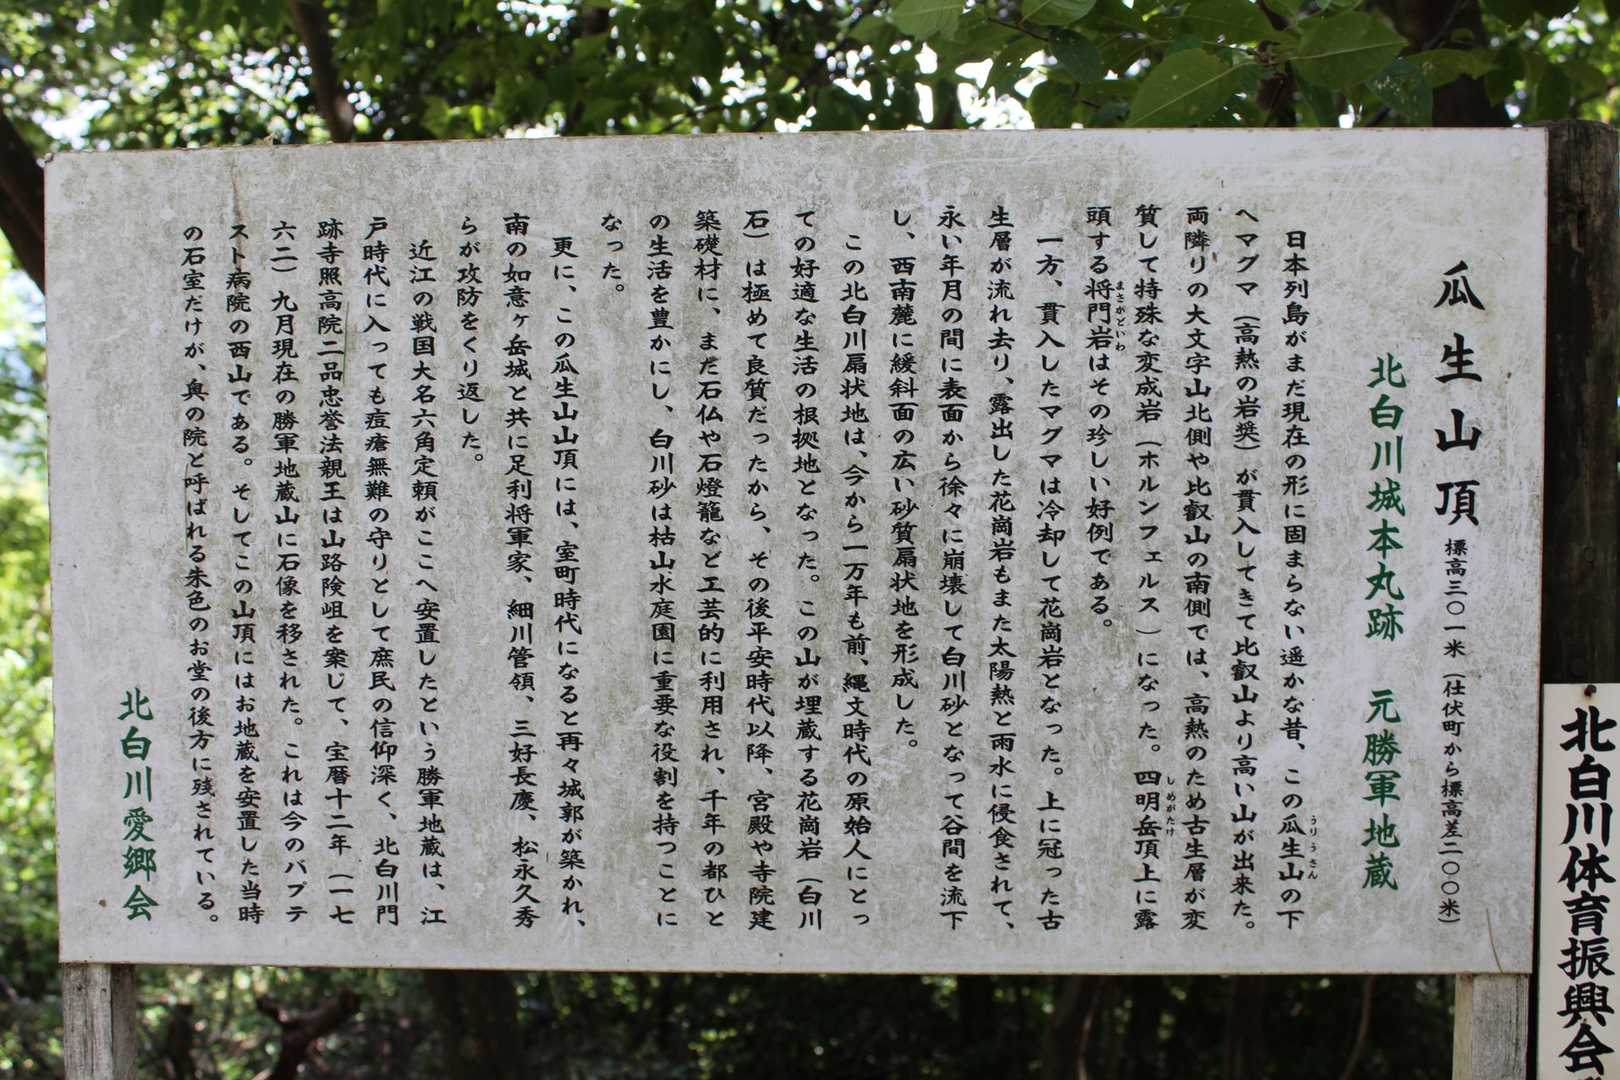 瓜生山頂 標高三〇一米（仕伏町から標高差二〇〇米）
北白川城本丸跡　元勝軍地蔵
日本列島がまだ現在の形に固まらない遥かな昔、この瓜生山の下
うりうさん
へマグマ（高熱の岩奨）が貫入してきて比叡山より高い山が出来た。
両隣りの大文字山北側や比叡山の南側では、高熱のため古生層が変
質して特殊な変成岩（ホルンフェルス）になった。四明岳頂上に露
しめがたけ
頭する将門岩はその珍しい好例である。
まさかどいわ
一方、貫入したマグマは冷却して花崗岩となった。上に冠った古
生層が流れ去り、露出した花崗岩もまた太陽熱と雨水に侵食されて、
永い年月の間に表面から徐々に崩壊して白川砂となって谷間を流下
し、西南麓に緩斜面の広い砂質扇状地を形成した。
この北白川扇状地は、今から一万年も前、縄文時代の原始人にとっ
ての好適な生活の根拠地となった。この山が埋蔵する花崗岩（白川
石）は極めて良質だったから、その後平安時代以降、宮殿や寺院建
築礎材に、まだ石仏や石燈籠など工芸的に利用され、千年の都ひと
の生活を豊かにし、白川砂は枯山水庭園に重要な役割を持つことに
なった。
更に、この瓜生山山頂には、室町時代になると再々城郭が築かれ、
南の如意ヶ岳城と共に足利将軍家、細川管領、三好長慶、松永久秀
らが攻防をくり返した。
近江の戦国大名六角定頼がここへ安置したという勝軍地蔵は、江
戸時代に入っても痘瘡無難の守りとして庶民の信仰深く、北白川門
跡寺照高院二品忠誉法親王は山路険岨を案じて、宝暦十二年（一七
六二）九月現在の勝軍地蔵山に石像を移された。これは今のバプテ
スト病院の西山である。そしてこの山頂にはお地蔵を安置した当時
の石室だけが、奥の院と呼ばれる朱色のお堂の後方に残されている。
北白川愛郷会
北白川体育振興会